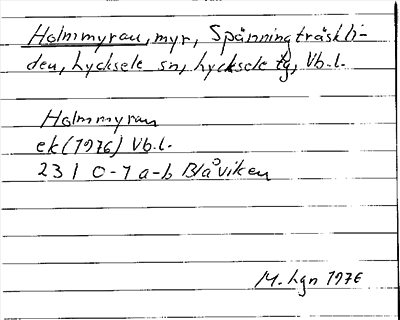 Holmmyran, myr, Spänningträskli-
den, Lycksele sn, Lycksele tg, Vb.l.
Holmmyran
ek (1976) Vb.l.
23 I 0-1 a-b Blåviken
M. Lgn 1976